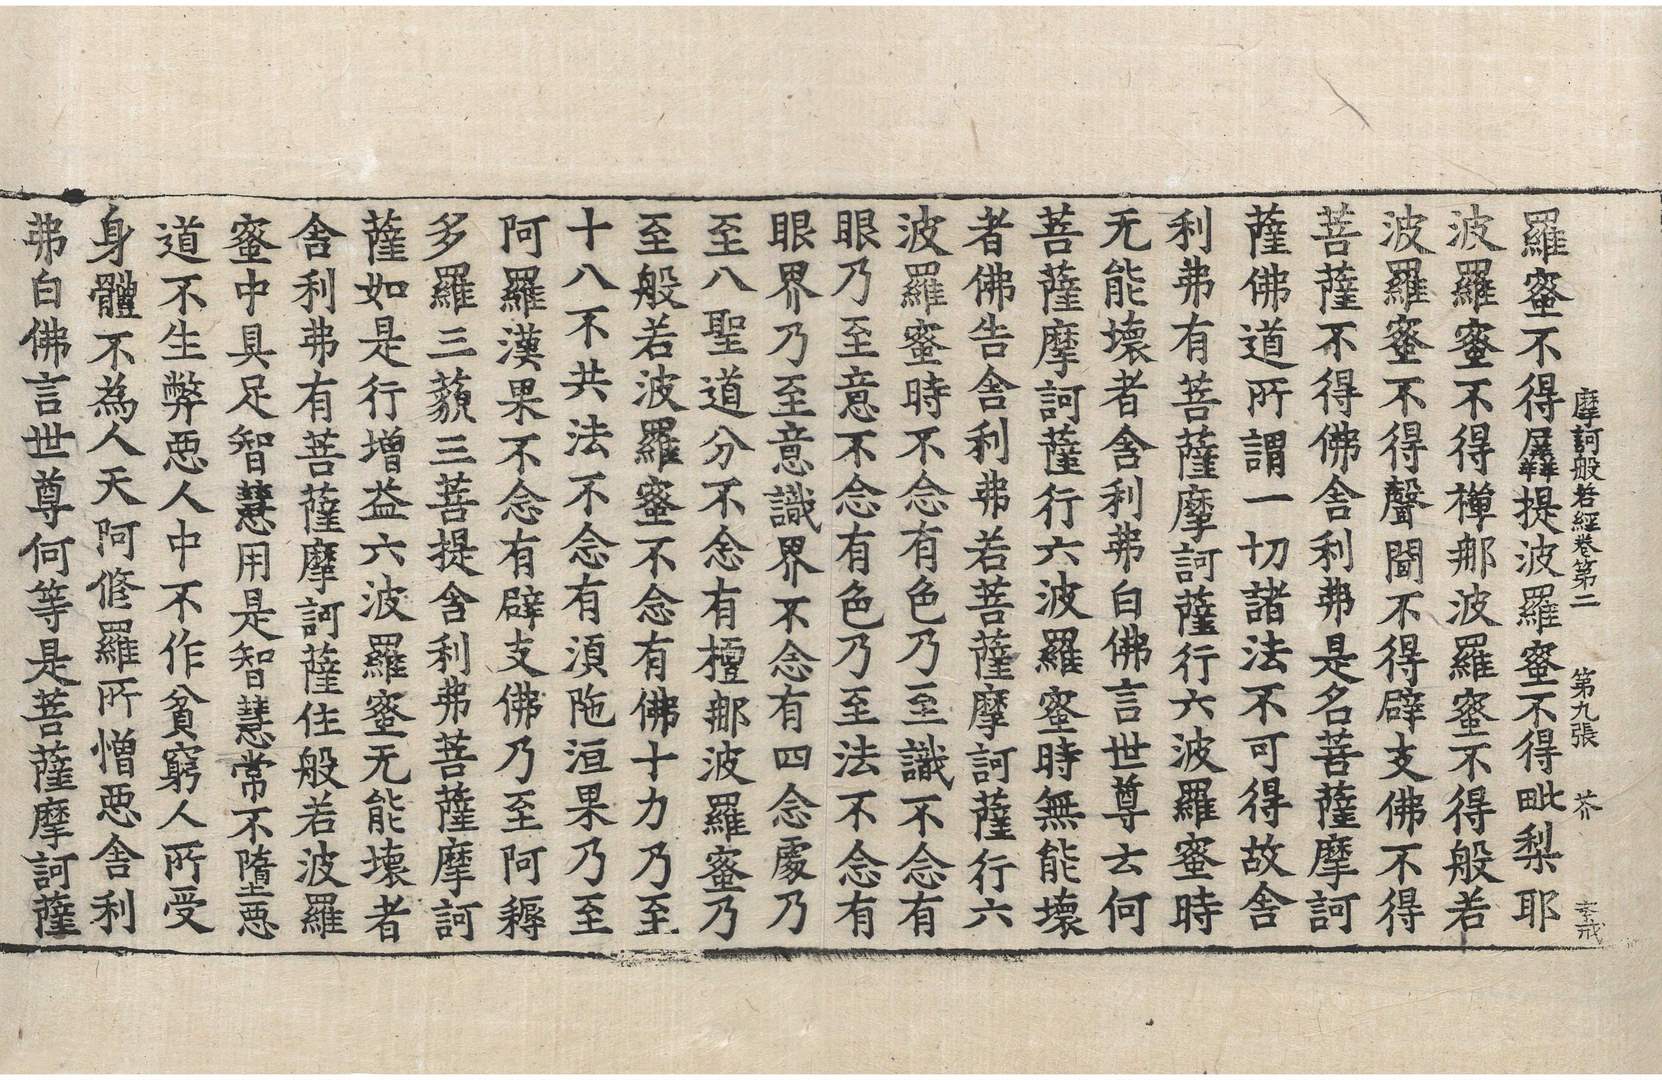 摩訶般若經卷第二 第九張 芥 玄戒
羅蜜不得羼提波羅蜜不得毗梨耶
波羅蜜不得禪那波羅蜜不得般若
波羅蜜不得聲聞不得辟支佛不得
菩薩不得佛舍利弗是名菩薩摩訶
薩佛道所謂一切諸法不可得故舍
利弗有菩薩摩訶薩行六波羅蜜時
无能壞者舍利弗白佛言世尊云何
菩薩摩訶薩行六波羅蜜時無能壞
者佛告舍利弗若菩薩摩訶薩行六
波羅蜜時不念有色乃至識不念有
眼乃至意不念有色乃至法不念有
眼界乃至意識界不念有四念處乃
至八聖道分不念有檀那波羅蜜乃
至般若波羅蜜不念有佛十力乃至
十八不共法不念有須陁洹果乃至
阿羅漢果不念有辟支佛乃至阿耨
多羅三藐三菩提舍利弗菩薩摩訶
薩如是行增益六波羅蜜无能壞者
舍利弗有菩薩摩訶薩住般若波羅
蜜中具足智慧用是智慧常不墮惡
道不生弊惡人中不作貧窮人所受
身體不為人天阿脩羅所憎惡舍利
弗白佛言世尊何等是菩薩摩訶薩